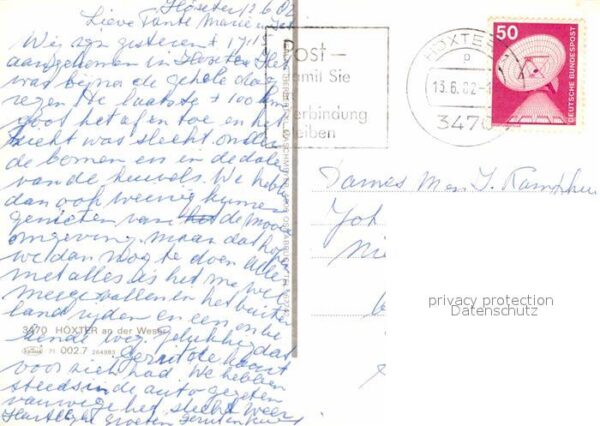 Höxter 12.6.'82
Lieve Tante Marie en Jo
Wij zijn gisteren ± 17.15
aangekomen in Höxter. Het
was bijna de gehele dag
regen. De laatste ± 100 km
goot het af en toe en het
zicht was slecht onder
de bomen en in de dalen
van de heuvels. We hebben
dan ook weinig kunnen
genieten van de mooie
omgeving. maar dat hopen
we dan nog te doen. Alles
met alles is het me wel
meegevallen in het buiten
land rijden en een onbe
kende weg, gelukkig dat
Gerrit de kaart
voor zich had. We hebben
steeds in de auto gegeten
vanwege het slecht weer
Hartelijke groeten Gerrit en
3470 HÖXTER an der Weser
71 002.7 264983
Post –
damit Sie
in
Verbindung
bleiben
HÖXTER
p
13.6.82
3470
50
DEUTSCHE BUNDESPOST
Dames M en J. Kamphu
Joh
privacy protection
Datenschutz